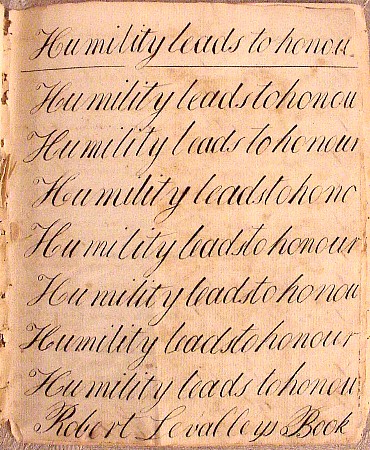 Humility leads to honou
Humility leads to honou
Humility leads to honour
Humility leads to hono
Humility leads to honour
Humility leads to honou
Humility leads to honour
Humility leads to honour
Robert Levalleys Book